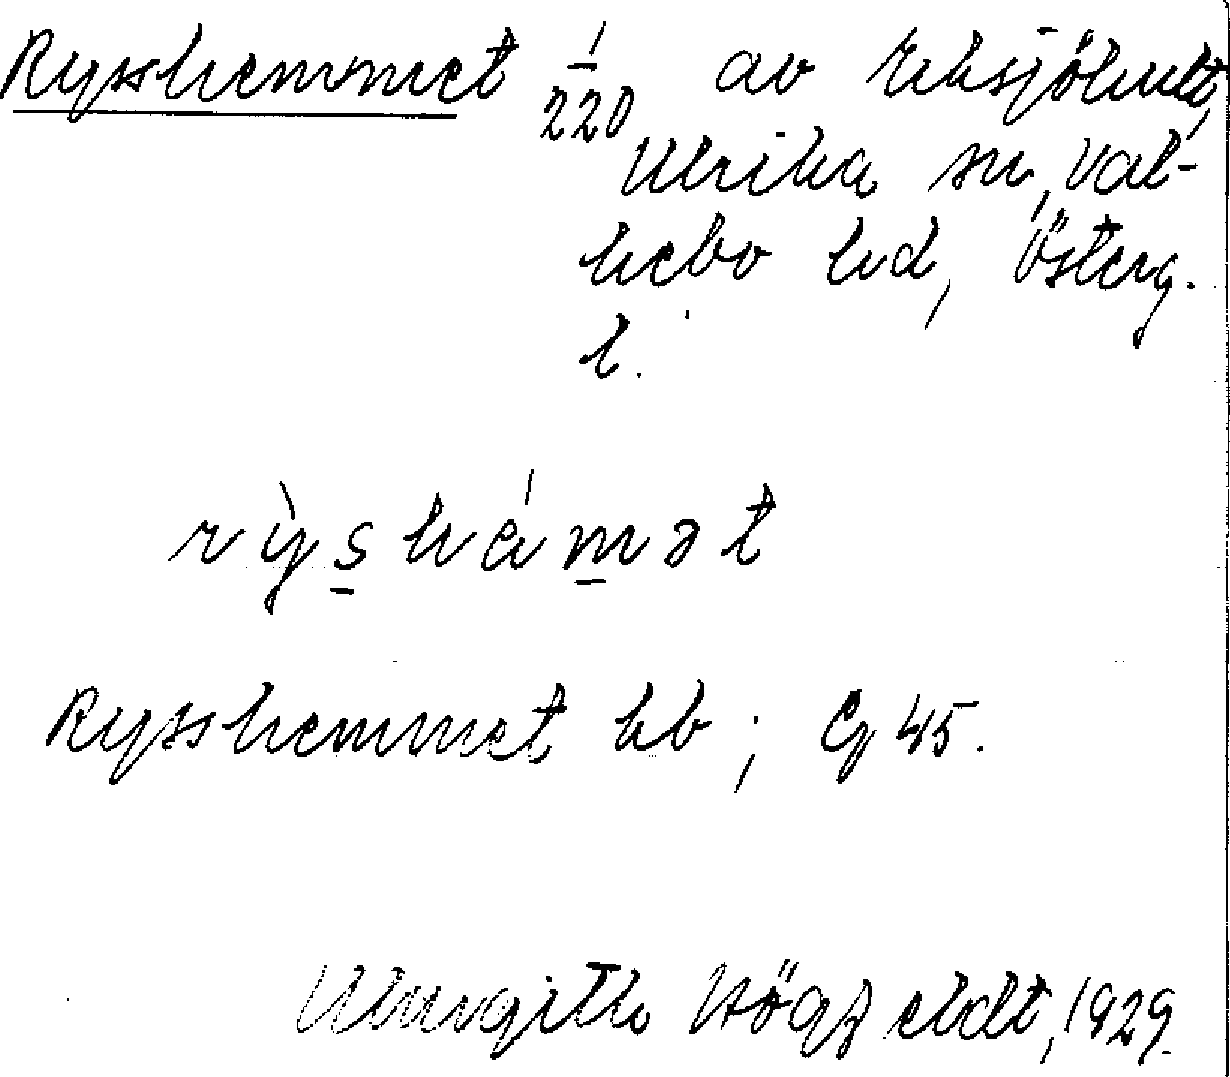 Rysshemmet 1/220 av Eksjöhult,
Ulrika sn, Val-
kebo hd, Österg.
l.
rỳshámət
Rysshemmet kb; G 45.
Margith Högfeldt, 1929.